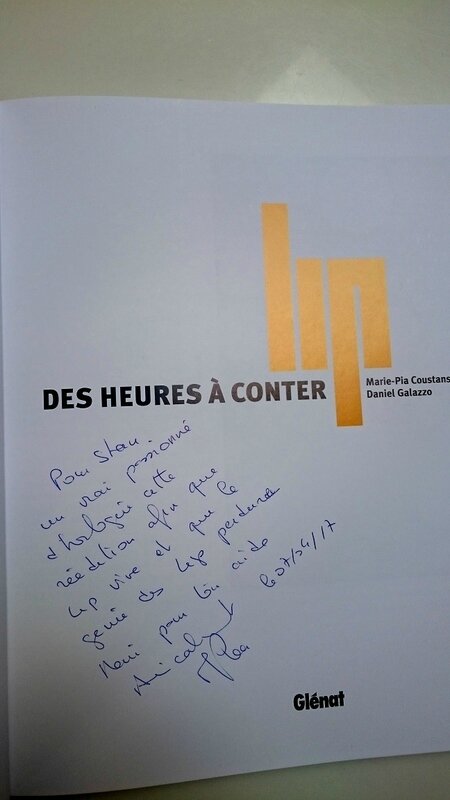 lip
DES HEURES À CONTER
Marie-Pia Coustans
Daniel Galazzo
Pour Stan
un vrai passionné
d'horlogerie cette
réédition afin que
Lip vive et que le
génie des Lip perdure
Merci pour ton aide
Amicalement le 07/04/17
Glénat